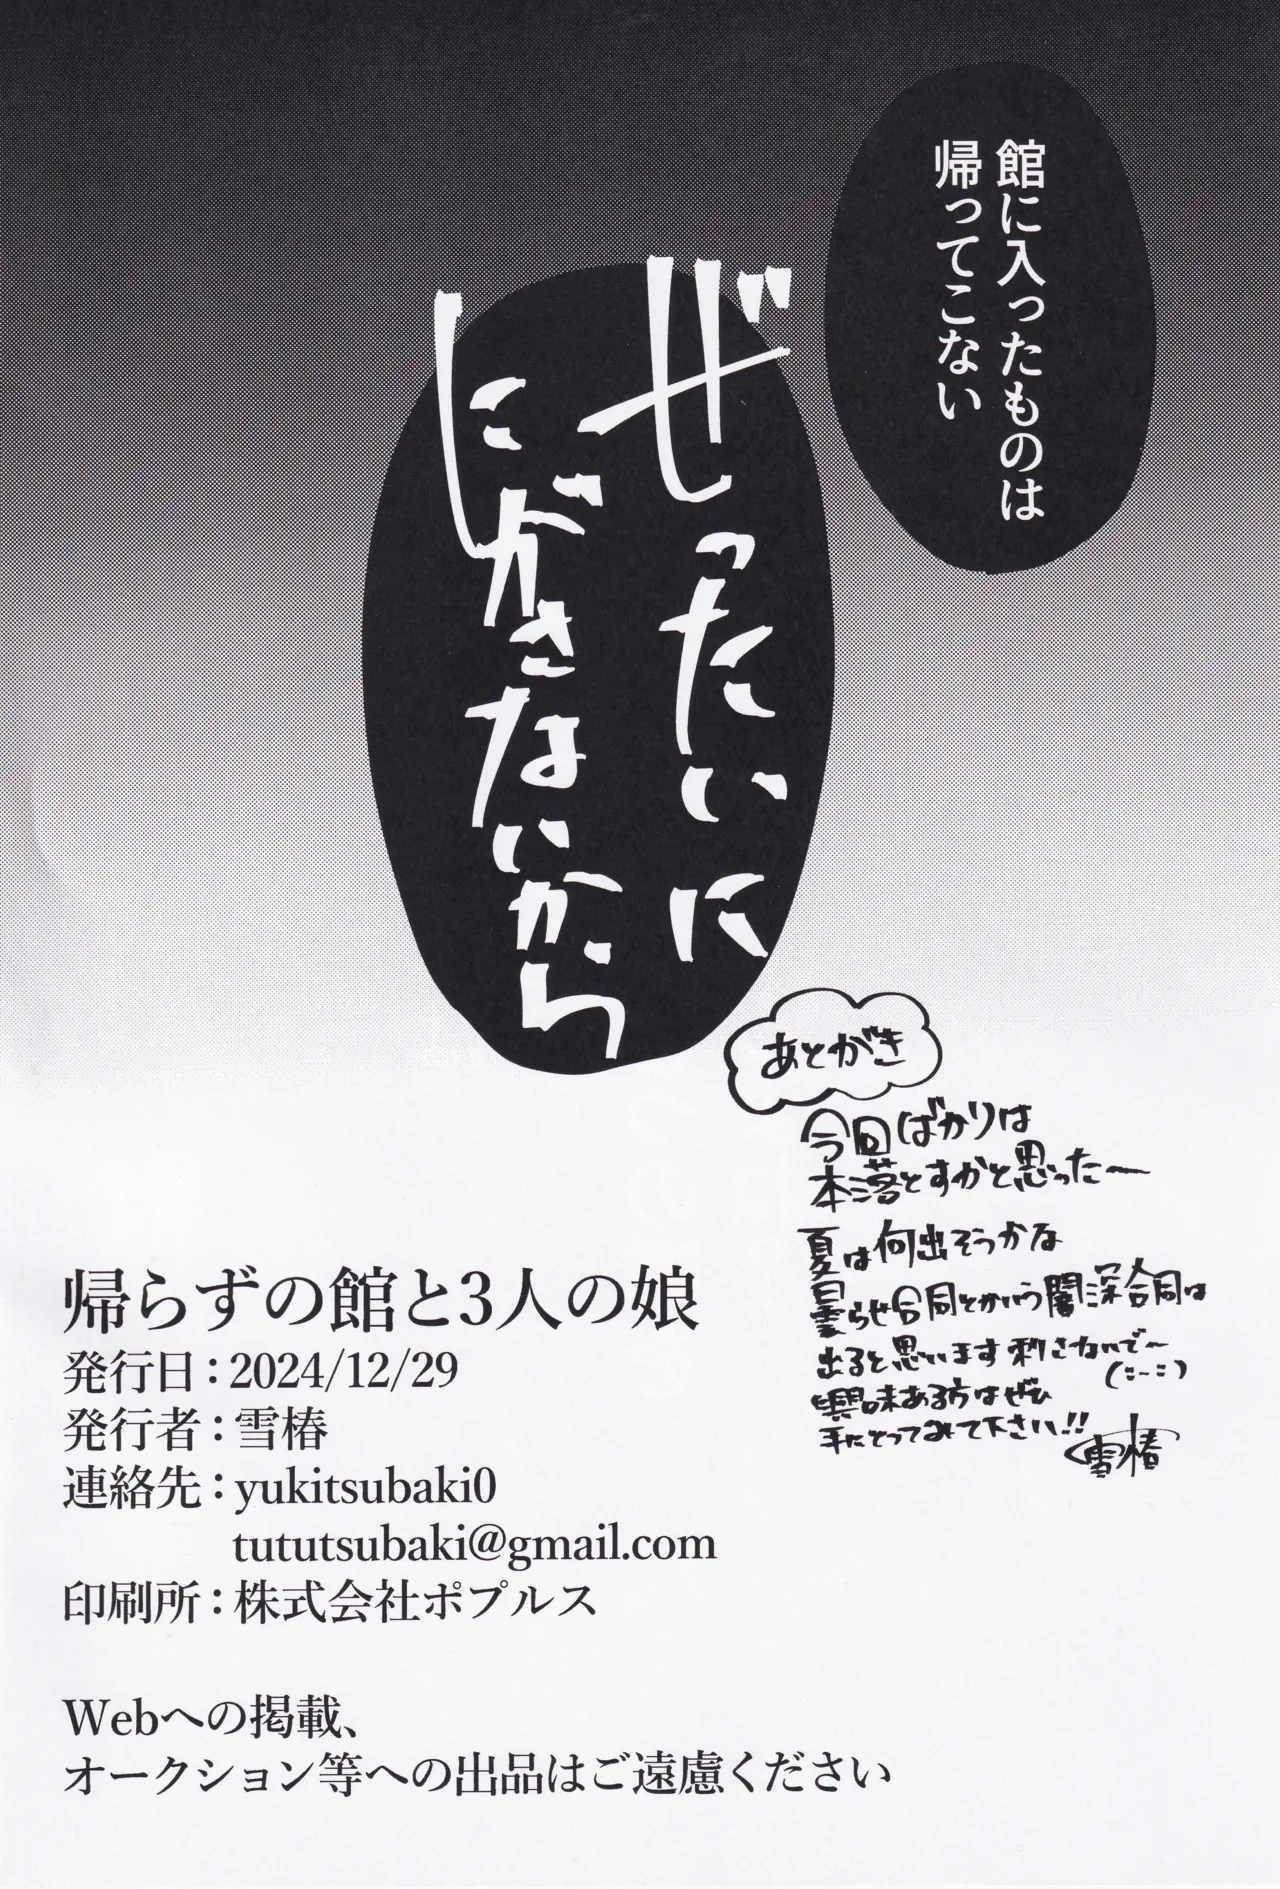 館に入ったものは
帰ってこない
ぜったいに
にがさないから
あとがき
今回ばかりは
本落とすかと思った〜
夏は何出そうかな
曇らせ合同とかいう闇深合同は
出ると思います刺さないで〜
(ﾆ-ﾆ)
興味ある方はぜひ
手にとってみて下さい!!
雪椿
帰らずの館と3人の娘
発行日：2024/12/29
発行者：雪椿
連絡先：yukitsubaki0
tututsubaki@gmail.com
印刷所：株式会社ポプルス
Webへの掲載、
オークション等への出品はご遠慮ください